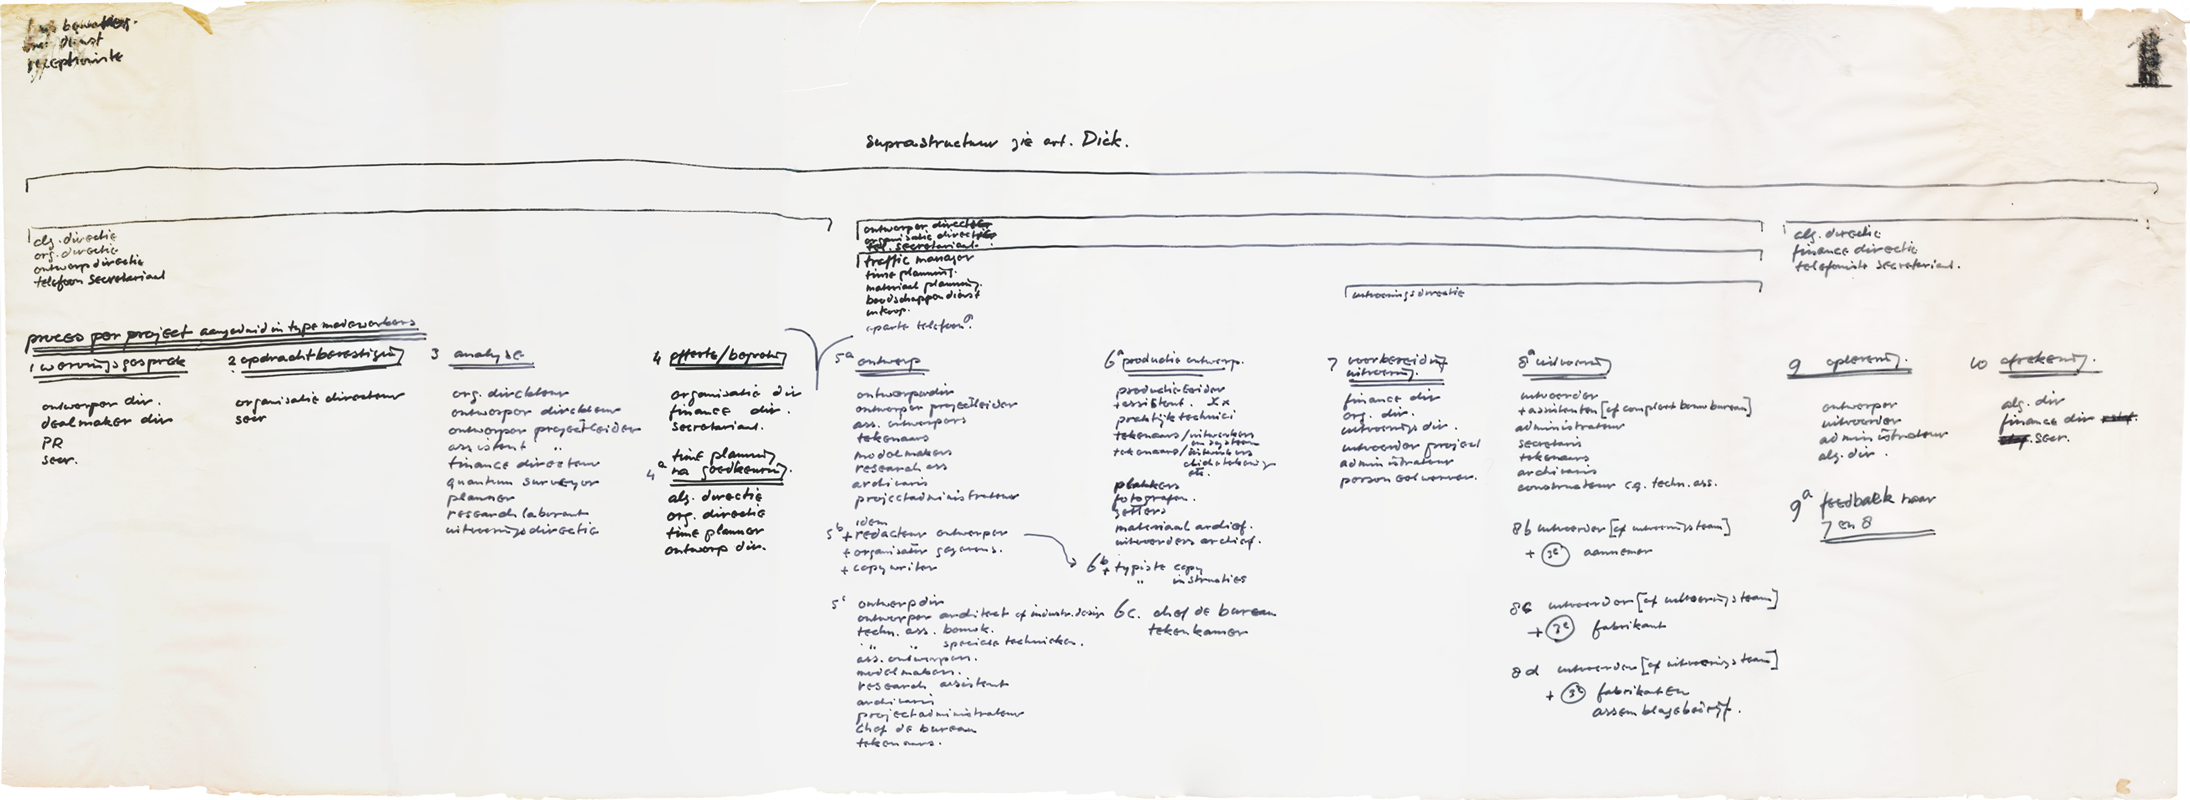 receptioniste
Suprastructuur zie art. Dick.
alg. directie
org. directie
ontwerpdirectie
telefoon secretariaat
ontwerper directeur
organisatie directeur
tel. secretariaat.
traffic manager
time planning.
materiaal planning.
boodschappendienst
inkoop.
aparte telefoon?
uitvoeringsdirectie
alg. directie
finance directie
telefoniste secretariaat.
proces per project aangeduid in type medewerkers
1 wervingsgesprek
ontwerper dir.
dealmaker dir
PR
secr.
2 opdrachtbevestiging
organisatie directeur
secr
3 analyse
org. directeur
ontwerper directeur
ontwerper projectleider
assistent "
finance directeur
quantum surveyor
planner
research laborant
uitvoeringsdirectie
4 offerte/begroting
organisatie dir
finance dir.
secretariaat.
4a time planning
na goedkeuring.
alg. directie
org. directie
time planner
ontwerp dir.
5a ontwerp
ontwerperdir
ontwerper projectleider
ass. ontwerpers
tekenaars
modelmakers
research ass
archivaris
projectadministrateur
5b idem
+ redacteur ontwerper
+ organisator gegevens.
+ copywriter
5c ontwerpdir
ontwerper architect of industr. design
techn. ass. bouwk.
" " speciale technieken.
ass. ontwerpers.
modelmakers.
research assistent
archivaris
projectadministrateur
chef de bureau
tekenaars.
6a productie ontwerp.
productieleider
+ assistent. xx
praktijk technici
tekenaars/uitwerkers
en systeem
tekenaars/uitwerkers
etc.
plakkers
fotografen.
zetters
materiaal archief.
uitvoerders archief.
6b + typiste copy
" instructies
6c. chef de bureau
tekenkamer
7 voorbereiding
uitvoering.
finance dir
org. dir.
uitvoerings dir.
uitvoerder project
administrateur
personeelwerver.
8a uitvoering
uitvoerder
+ assistenten [of compleet bouwbureau]
administrateur
secretaris
tekenaars
archivaris
constructeur c.q. techn. ass.
8b uitvoerder [of uitvoeringsteam]
+ 3e aannemer
8c uitvoerder [of uitvoeringsteam]
+ 3e fabrikant
8d uitvoerder [of uitvoeringsteam]
+ 3e fabrikant en
assemblagebedrijf.
9 oplevering.
ontwerper
uitvoerder
administrateur
alg. dir.
9a feedback naar
7 en 8
10 afrekening.
alg. dir
finance dir
secr.